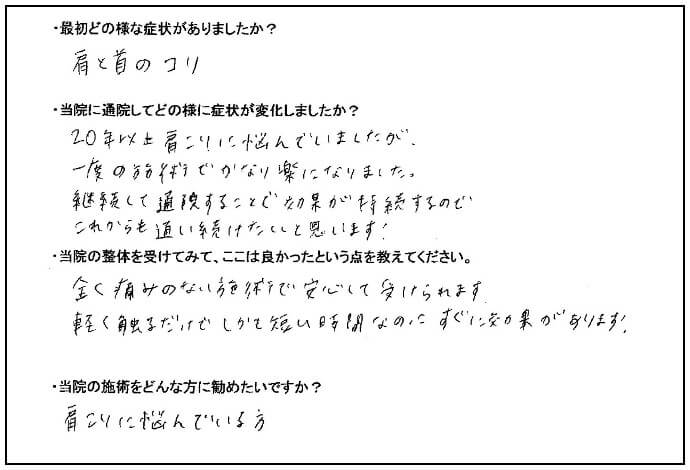 ・最初どの様な症状がありましたか？
肩と首のコリ
・当院に通院してどの様に症状が変化しましたか？
20年以上肩こりに悩んでいましたが、
一度の施術でかなり楽になりました。
継続して通院することで効果が持続するので
これからも通い続けたいと思います!
・当院の整体を受けてみて、ここは良かったという点を教えてください。
全く痛みのない施術で安心して受けられます
軽く触るだけでしかも短い時間なのにすぐに効果があります!
・当院の施術をどんな方に勧めたいですか？
肩こりに悩んでいる方